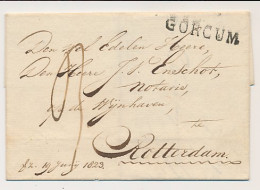 GORCUM
Den wel Edelen Heere,
Den Heere J. S. Enschot,
Notaris,
op de Wijnhaven,
te
Rotterdam.
19 Juny 1823.